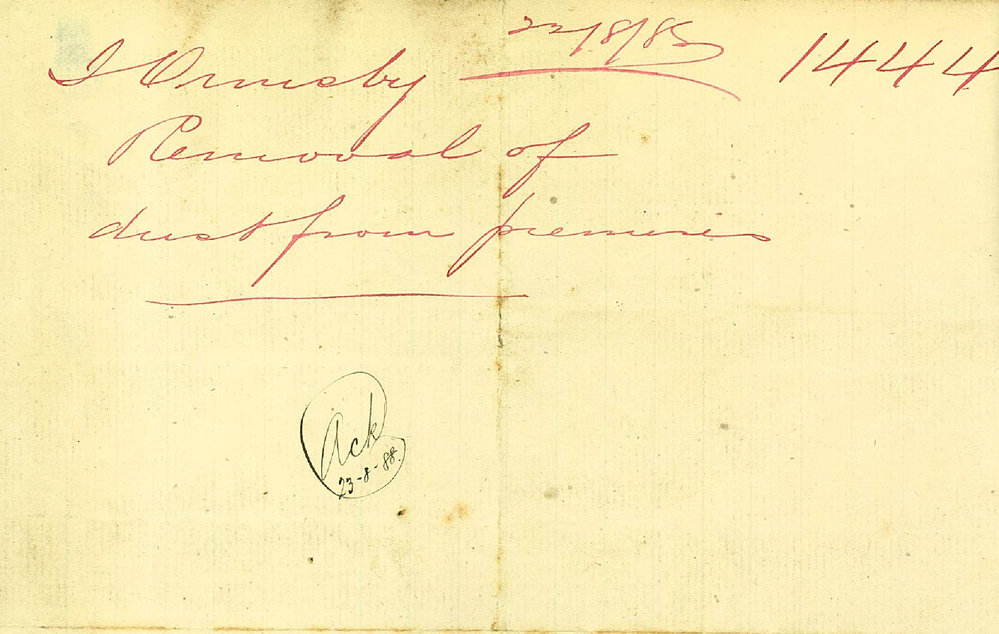 J Ormsby 22/8/88 1444
Removal of
dust from premises
Ack
23-8-88.